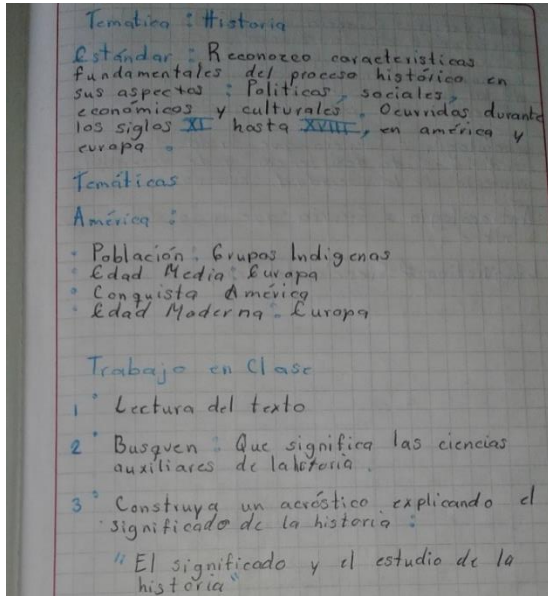 Tematica : Historia
Estándar : Reconozco caracteristicas
fundamentales del proceso histórico en
sus aspectos : Politicas, sociales,
económicos y culturales. Ocurridas durante
los siglos XI hasta XVIII, en américa y
europa.
Temáticas
América :
• Población : Grupos Indigenas
• Edad Media : Europa
• Conquista América
• Edad Moderna : Europa
Trabajo en Clase
1° Lectura del texto
2° Busquen : Que significa las ciencias
auxiliares de la historia.
3° Construya un acróstico explicando el
significado de la historia :
"El significado y el estudio de la
historia"